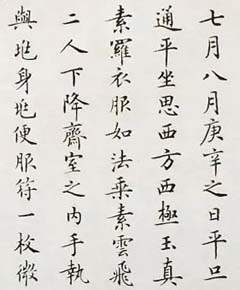 七月八月庚辛之日平旦
通平坐思西方西極玉真
素羅衣服如法乘素雲飛
二人下降齊室之內手執
與兆身兆便服符一枚微